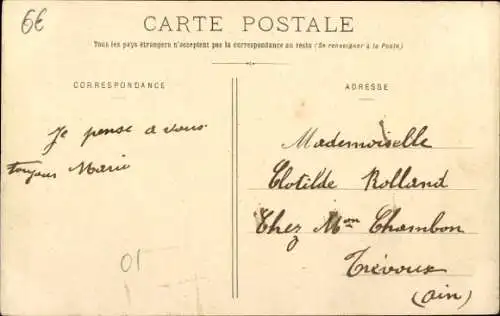 6€
CARTE POSTALE
Tous les pays étrangers n'acceptent pas la correspondance au recto (Se renseigner à la Poste)
CORRESPONDANCE
ADRESSE
Je pense a vous
toujours Marie
Mademoiselle
Clotilde Rolland
Chez Mon Chambon
Trévoux
(Ain)
01